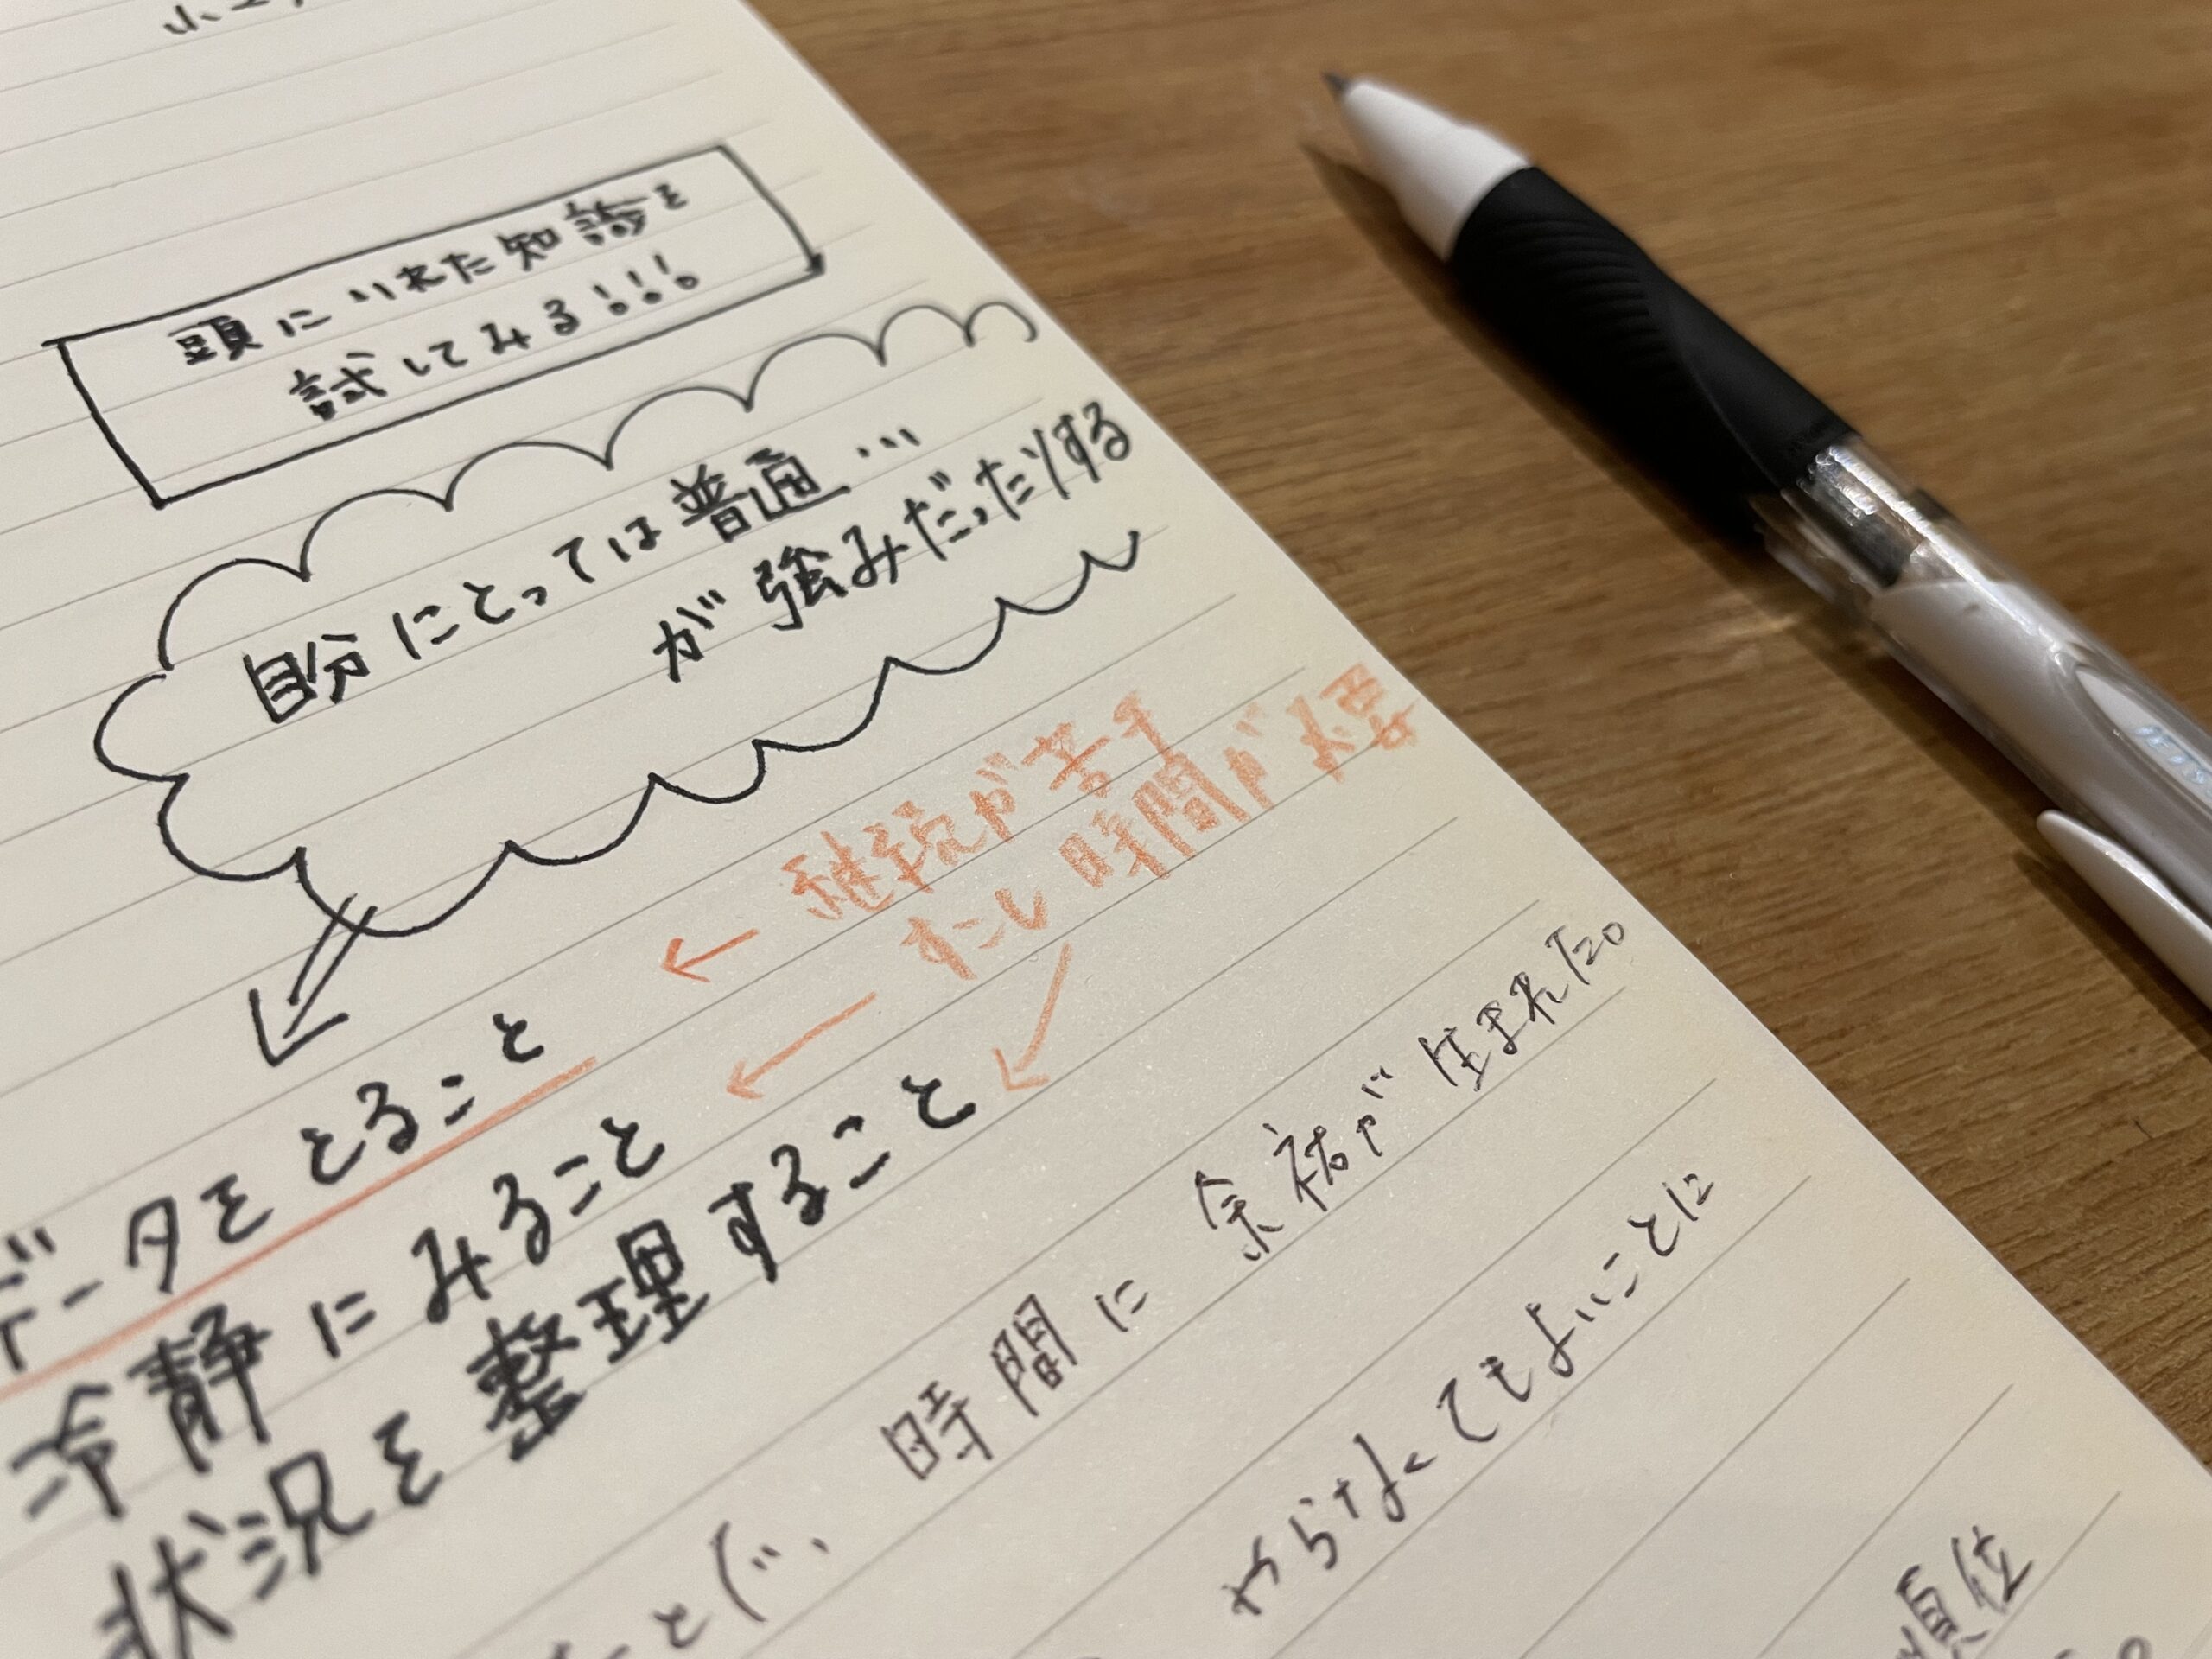 頭にいれた知識を
試してみる!!!
自分にとっては普通…
が強みだったりする
継続が苦手
ただし時間が必要
データをとること
冷静にみること
状況を整理すること
とで、時間に余裕が生まれた。
やらなくてもよいことに
順位